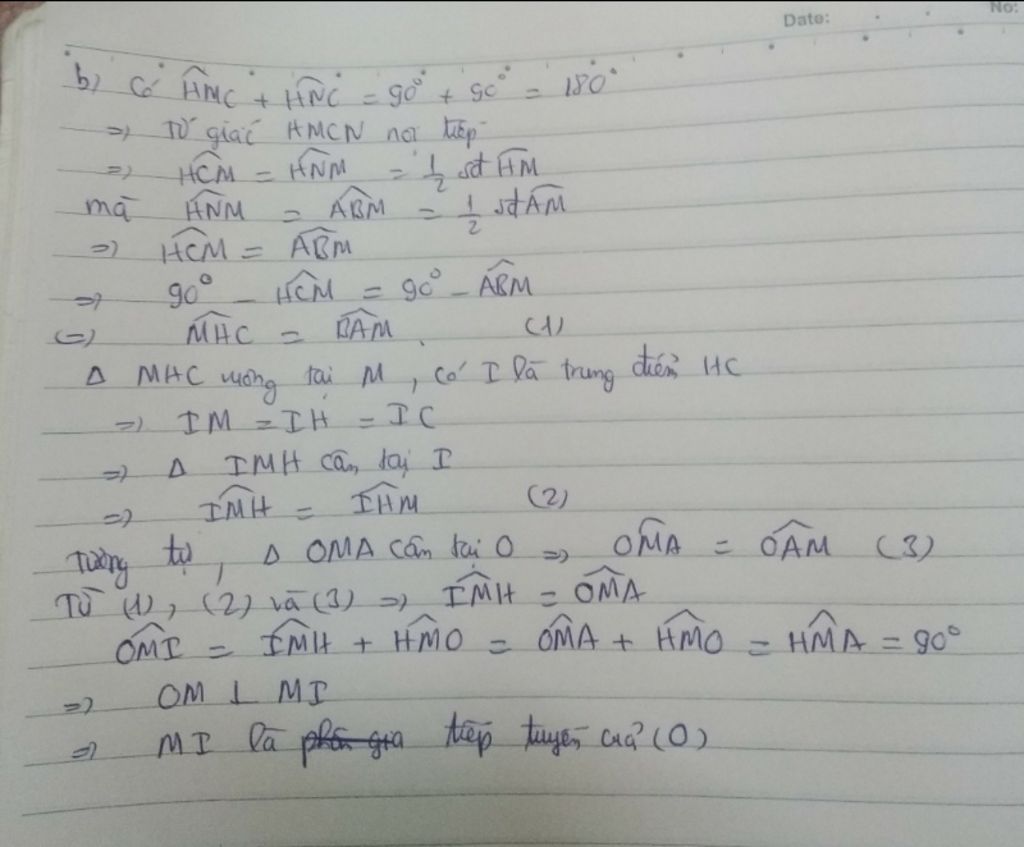 Date: No:
b) Có HMC + HNC = 90° + 90° = 180°
=> Tứ giác HMCN nội tiếp
=> HCM = HNM = 1/2 sđ HM
mà HNM = ABM = 1/2 sđ AM
=> HCM = ABM
=> 90° - HCM = 90° - ABM
(=) MHC = BAM. (1)
Δ MHC vuông tại M, có I là trung điểm HC
=> IM = IH = IC
=> Δ IMH cân tại I
=> IMH = IHM (2)
Tương tự, Δ OMA cân tại O => OMA = OAM (3)
Từ (1), (2) và (3) => IMH = OMA
OMI = IMH + HMO = OMA + HMO = HMA = 90°
=> OM ⊥ MI
=> MI là tiếp tuyến của (O)